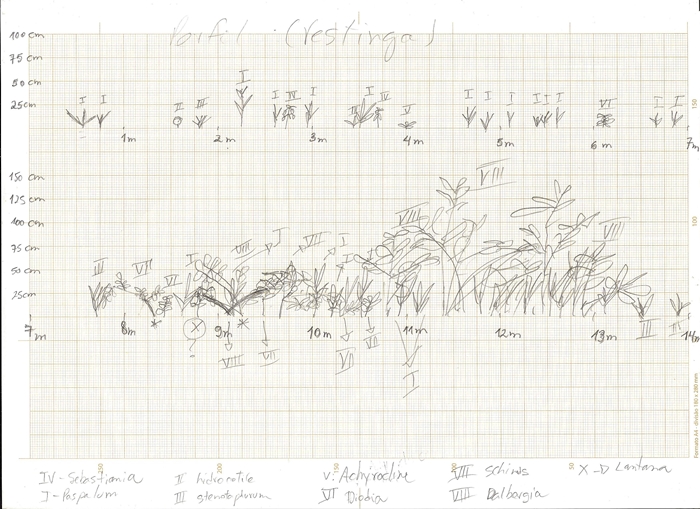 Perfil (restinga)
100 cm
75 cm
50 cm
25cm
I I II III I I IV I I IV V I I I I I I VI I I
1m 2m 3m 4m 5m 6m 7m
150 cm
125 cm
100 cm
75 cm
50 cm
25cm
VIII
VIII VIII
III VII VI I VIII I VII I I
7m 8m 9m 10m 11m 12m 13m 14m
X
?
VIII VII VII VII I III III
150
100
200 150 50
Formato A4 - divisão 180 x 280 mm
IV - Sebastiania II hidrocotile V. Achyrocline VII Schinus X → Lantana
I - Paspalum III stenotaphrum VI Diodia VIII Dalbergia